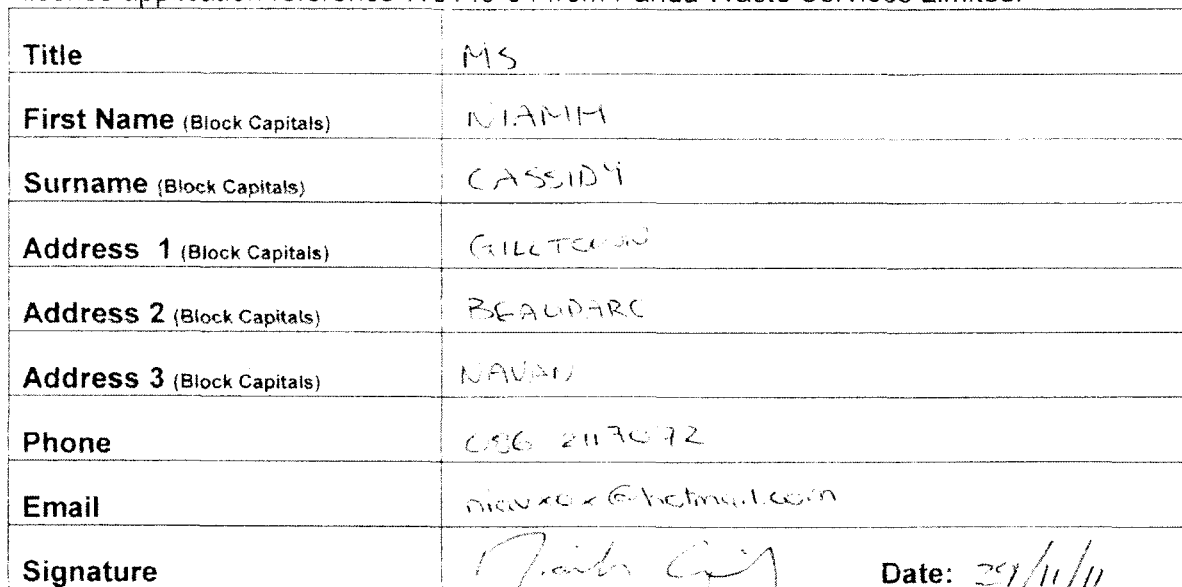 Title MS
First Name (Block Capitals) NIAMH
Surname (Block Capitals) CASSIDY
Address 1 (Block Capitals) GILLTOWN
Address 2 (Block Capitals) BEAUPARC
Address 3 (Block Capitals) NAVAN
Phone 086 2117072
Email
Signature Date: 29/11/11